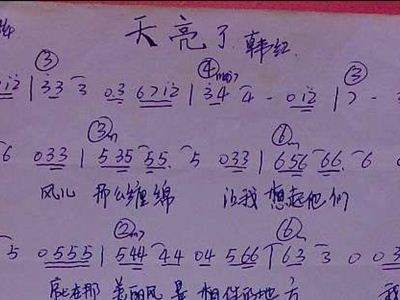 天亮了 韩红
③ ④maj7 ③
0 1 2 | 3 3 3 0 3 6 7 1 2 | 3 4 4 - 0 1 2 | 7 -
③m ⑥m
6 0 3 3 | 5 35 55. 5 0 3 3 | 6 56 66. 6
风儿 那么缠绵 让我 想起他们
②m ⑥m
5 0 5 5 5 | 5 44 44 04 5 66 | 63 3 0 0 3
就在那 美丽风景 相伴的地方 我